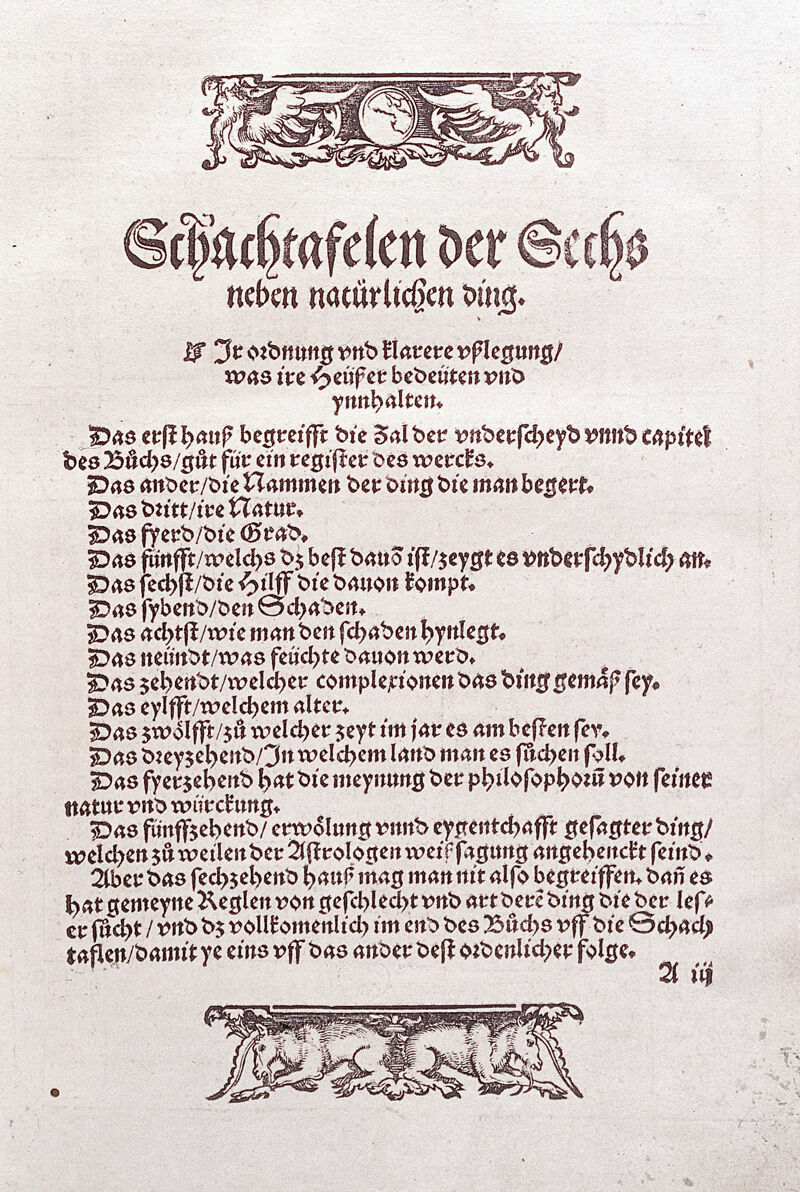 Schachtafelen der Sechs
neben natürlichen ding.
☞ Ir ordnung vnd klarere vßlegung/
was ire Heüßer bedeüten vnd
ynnhalten.
Das erst hauß begreifft die Zal der vnderscheyd vnnd capitel
des Bůchs/gůt für ein register des wercks.
Das ander/die Nammen der ding die man begert.
Das dritt/ire Natur.
Das fyerd/die Grad.
Das fünfft/welchs dz best dauō ist/zeygt es vnderschydlich an.
Das sechst/die Hilff die dauon kompt.
Das sybend/den Schaden.
Das achtst/wie man den schaden hynlegt.
Das neündt/was feüchte dauon werd.
Das zehendt/welcher complexionen das ding gemåß sey.
Das eylfft/welchem alter.
Das zwölfft/zů welcher zeyt im jar es am besten sey.
Das dreyzehend/In welchem land man es sůchen soll.
Das fyerzehend hat die meynung der philosophorū von seiner
natur vnd würckung.
Das fünffzehend/ erwölung vnnd eygentchafft gesagter ding/
welchen zů weilen der Astrologen weißsagung angehenckt seind.
Aber das sechzehend hauß mag man nit also begreiffen. dañ es
hat gemeyne Reglen von geschlecht vnd art derē ding die der les-
er sůcht / vnd dz vollkomenlich im end des Bůchs vff die Schach
taflen/damit ye eins vff das ander dest ordenlicher folge.
A iij